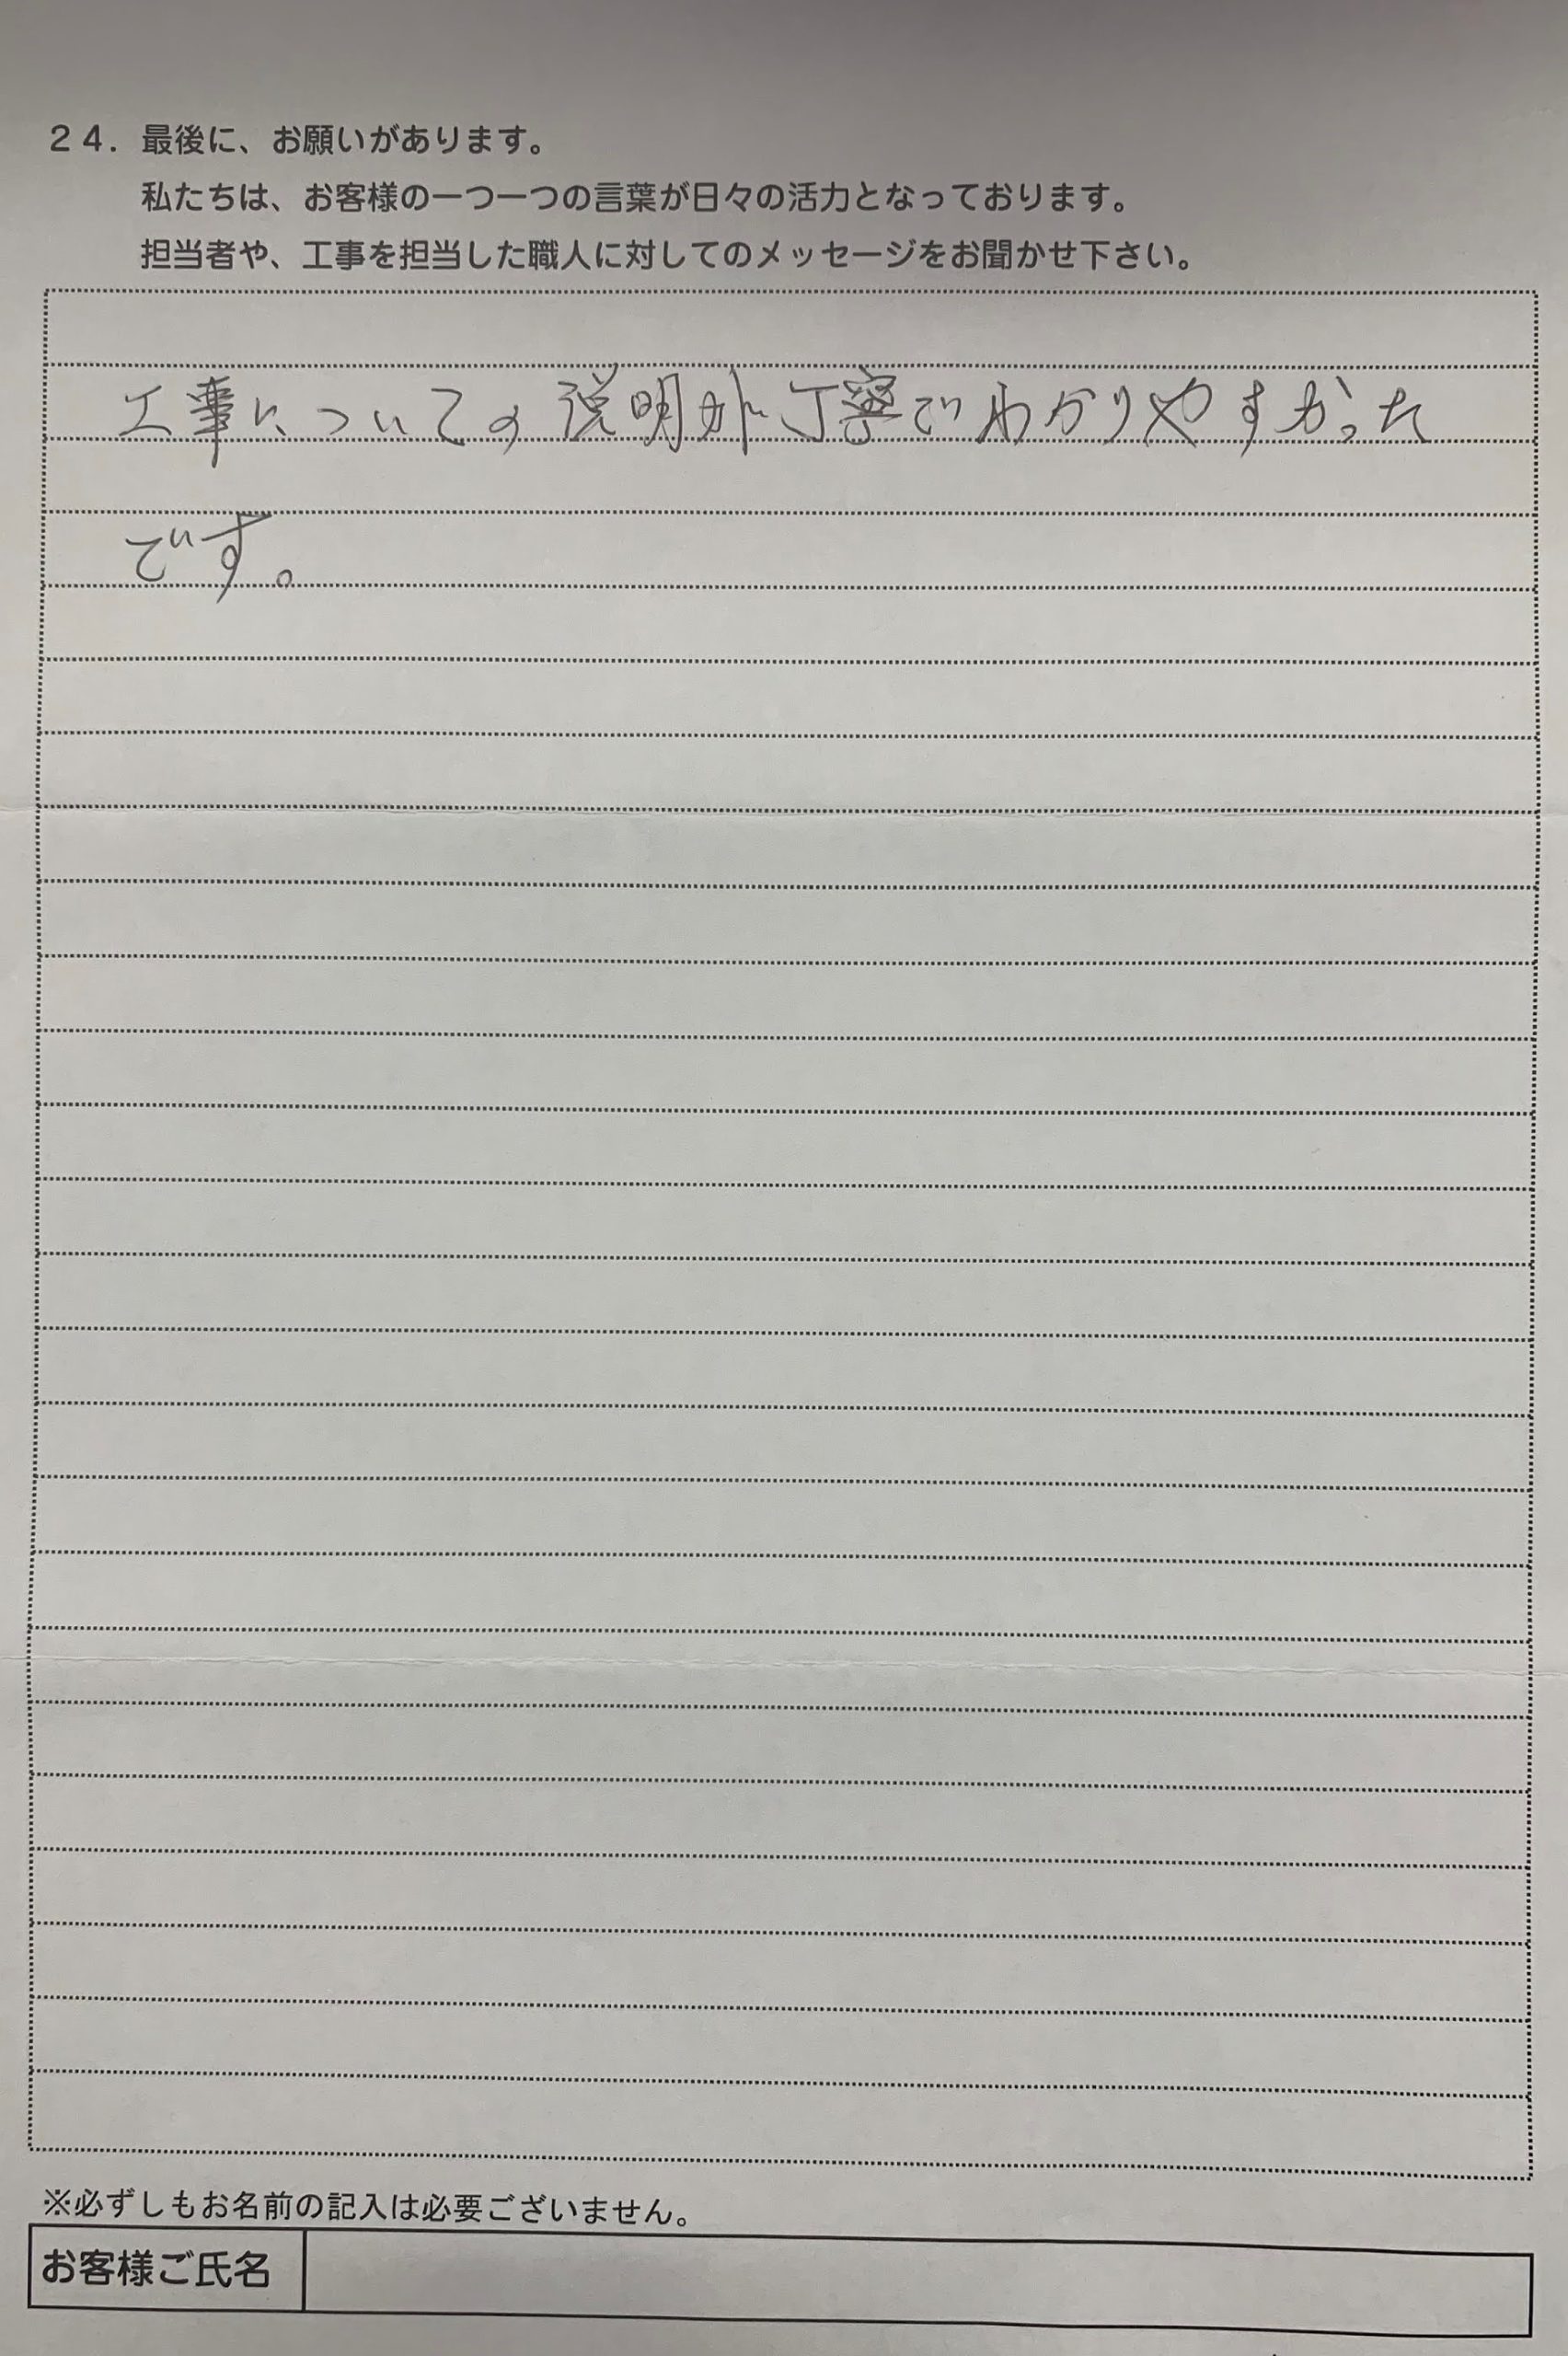 24. 最後に、お願いがあります。
私たちは、お客様の一つ一つの言葉が日々の活力となっております。
担当者や、工事を担当した職人に対してのメッセージをお聞かせ下さい。
工事についての説明が丁寧でわかりやすかった
です。
※必ずしもお名前の記入は必要ございません。
お客様ご氏名